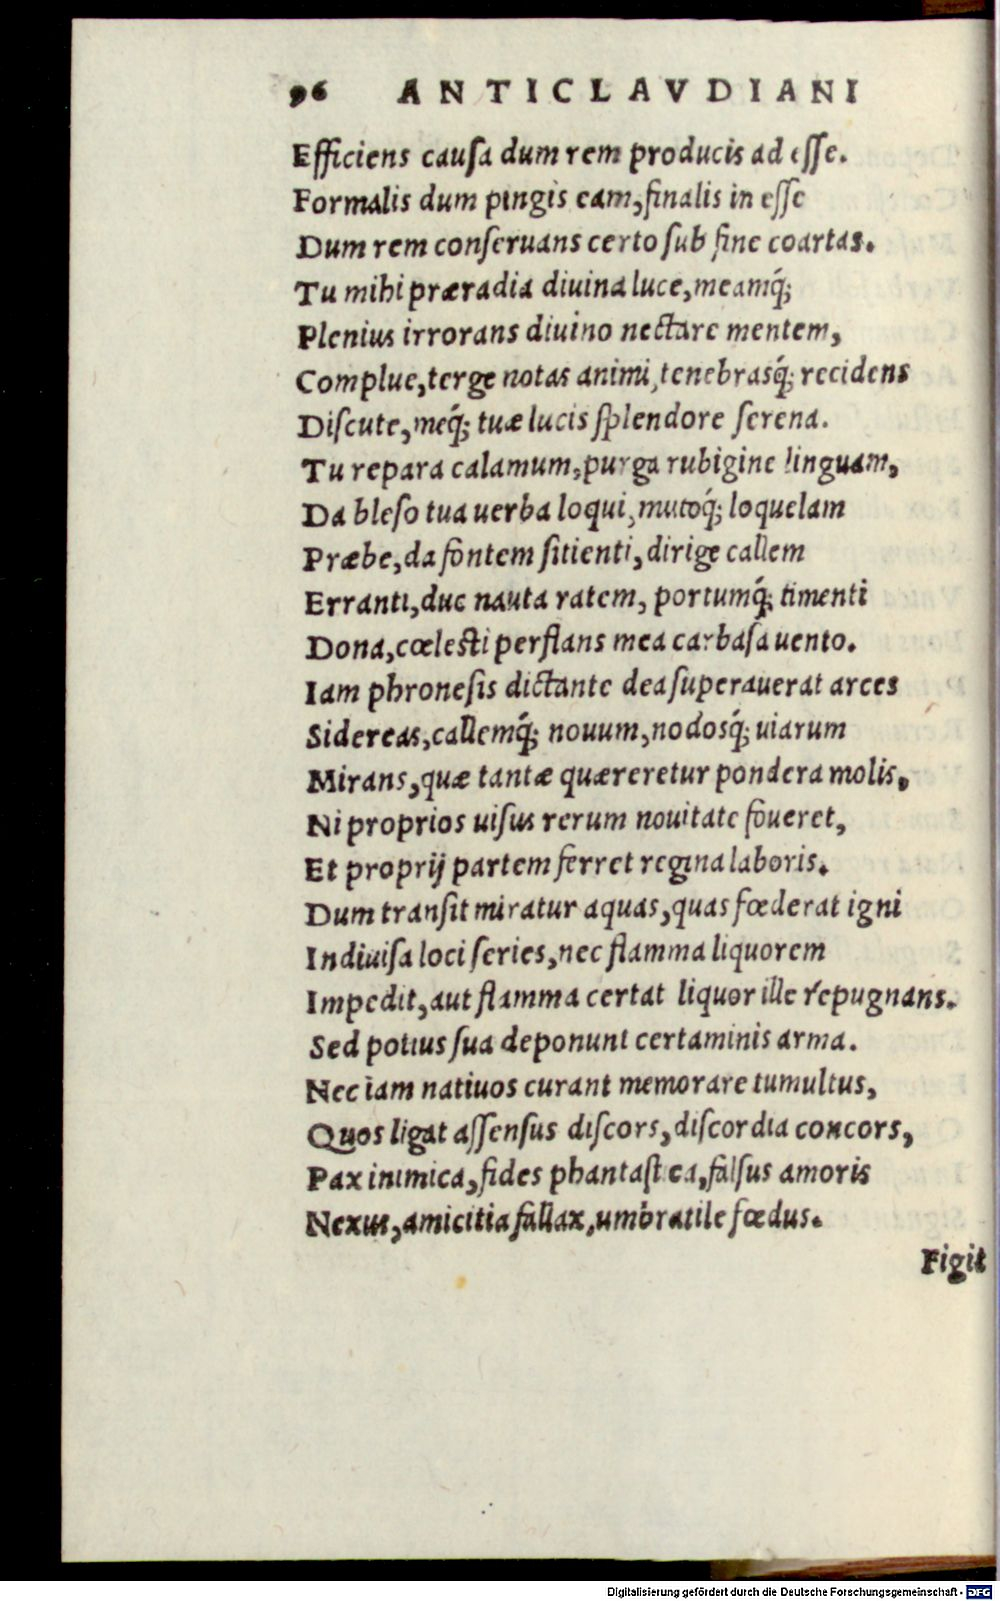 96 ANTICLAVDIANI
Efficiens cauſa dum rem producis ad eſſe.
Formalis dum pingis eam, finalis in eſſe
Dum rem conſeruans certo ſub fine coartas.
Tu mihi præradia diuina luce, meamq́;
Plenius irrorans diuino nectare mentem,
Complue, terge notas animi, tenebrasq́; recidens
Diſcute, meq́; tuæ lucis ſplendore ſerena.
Tu repara calamum, purga rubigine linguam,
Da bleſo tua uerba loqui, mutoq́; loquelam
Præbe, da fontem ſitienti, dirige callem
Erranti, duc nauta ratem, portumq́; timenti
Dona, cœleſti perflans mea carbaſa uento.
Iam phroneſis dictante dea ſuperauerat arces
Sidereas, callemq́; nouum, nodosq́; uiarum
Mirans, quæ tantæ quæreretur pondera molis,
Ni proprios uiſus rerum nouitate foueret,
Et proprij partem ferret regina laboris.
Dum tranſit miratur aquas, quas fœderat igni
Indiuiſa loci ſeries, nec flamma liquorem
Impedit, aut flamma certat liquor ille repugnans.
Sed potius ſua deponunt certaminis arma.
Nec iam natiuos curant memorare tumultus,
Quos ligat aſſenſus diſcors, diſcordia concors,
Pax inimica, fides phantaſt ca, falſus amoris
Nexus, amicitia fallax, umbratile fœdus.
Figit
Digitalisierung gefördert durch die Deutsche Forschungsgemeinschaft - DFG